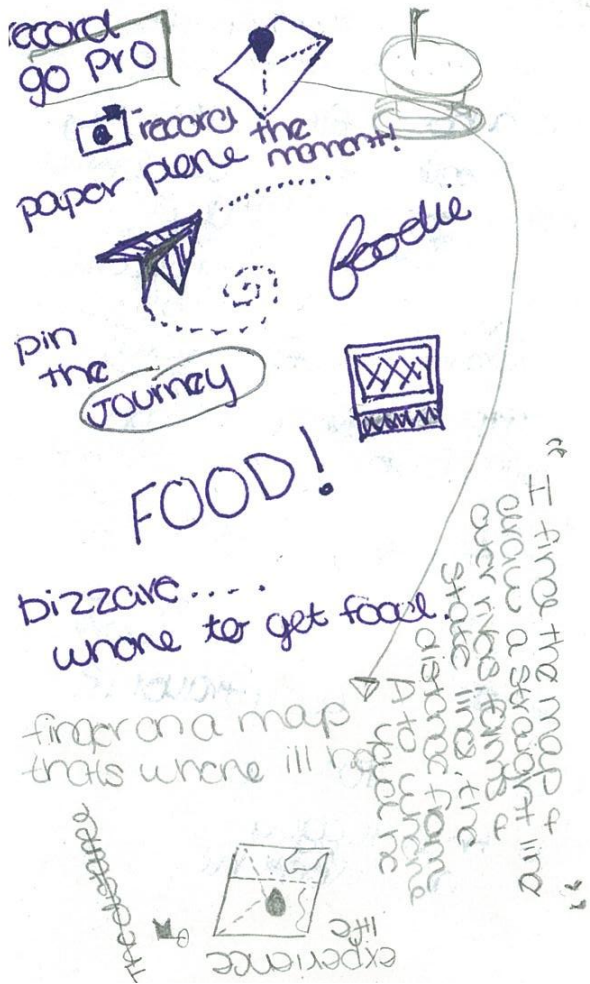 record
go Pro
record the
moment!
paper plane
foodie
pin
the
Journey
FOOD!
bizzare....
where to get food.
finger on a map
thats where ill be
"I find the map &
draw a straight line
over rivers farms &
state lines the
distance from
A to where
you'd be"
the distance
experience
life